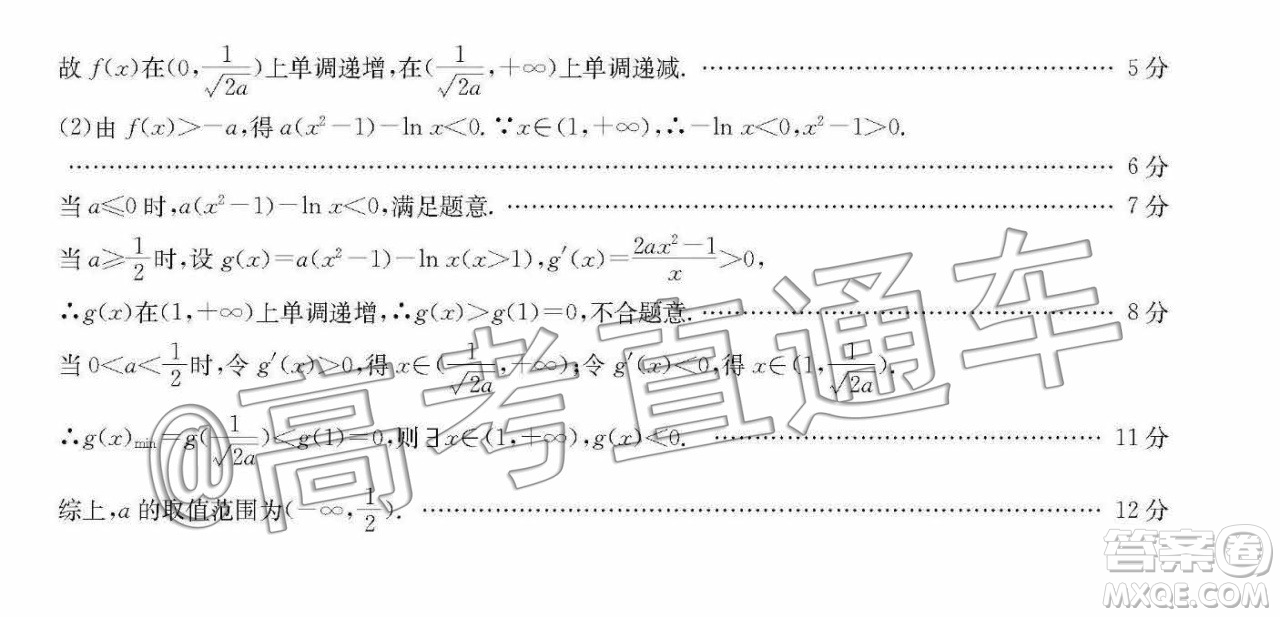 故 f(x)在(0,1/√2a)上单调递增,在(1/√2a,+∞)上单调递减. …… 5分
(2)由 f(x)>-a,得 a(x²-1)-ln x<0. ∵x∈(1,+∞),∴-ln x<0,x²-1>0.
…… 6分
当 a≤0 时,a(x²-1)-ln x<0,满足题意. …… 7分
当 a≥1/2时,设 g(x)=a(x²-1)-ln x(x>1),g′(x)=2ax²-1/x>0,
∴g(x)在(1,+∞)上单调递增,∴g(x)>g(1)=0,不合题意. …… 8分
当 0<a<1/2时,令 g′(x)>0,得 x∈(1/√2a,+∞);令 g′(x)<0,得 x∈(1,1/√2a).
∴g(x)min=g(1/√2a)<g(1)=0,则∃x∈(1,+∞),g(x)<0. …… 11分
综上,a 的取值范围为(-∞,1/2). …… 12分
@高考直通车
答案卷
MXQE.COM